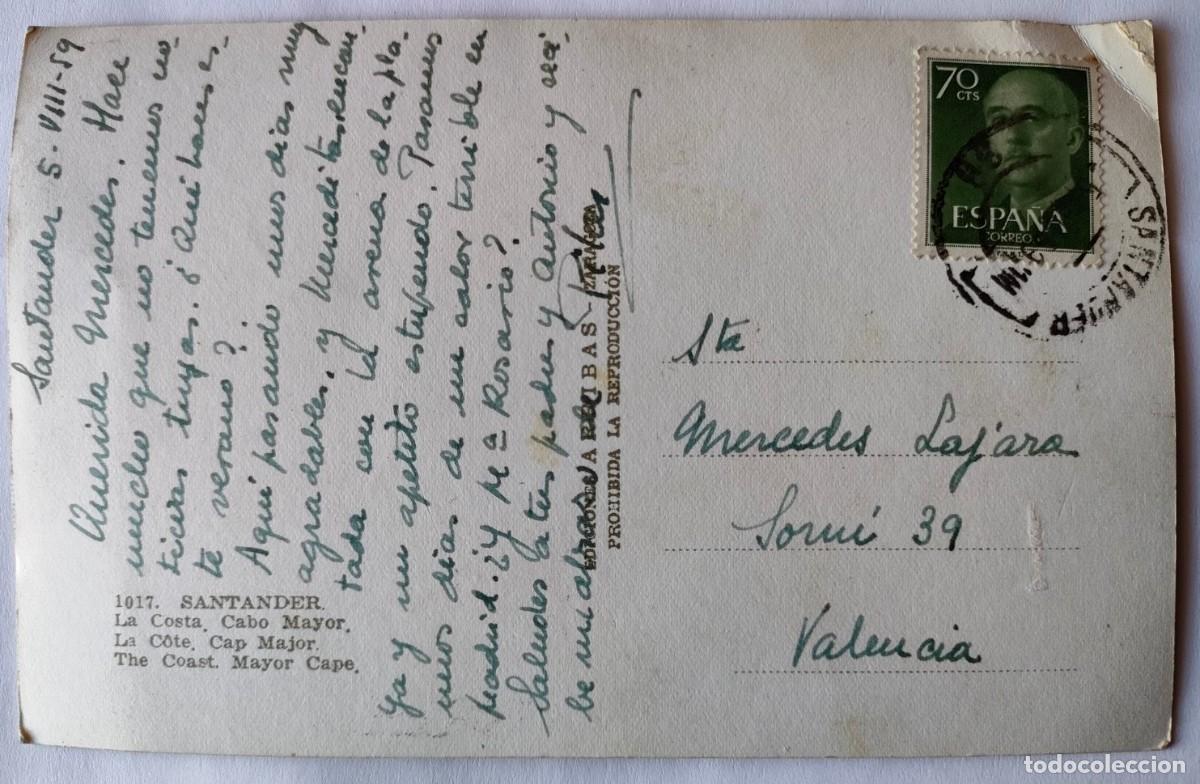 Santander 5-VIII-59
Querida Mercedes. Hace
mucho que no tenemos no-
ticias tuyas. ¿Qué haces es-
te verano?
Aquí pasando unos dias muy
agradables, y Merceditas encan-
tada con la arena de la pla-
ya y un apetito estupendo. Pasamos
unos dias de un calor terrible en
Madrid. ¿Y Mª Rosario?
Saludos a tus padres y Antonio y reci-
be un abrazo de
Pilar
1017. SANTANDER.
La Costa. Cabo Mayor.
La Côte. Cap Major.
The Coast. Mayor Cape.
EDICIONES ARRIBAS ZARAGOZA
PROHIBIDA LA REPRODUCCIÓN
70
CTS
ESPAÑA
CORREO
SANTANDER
Sta
Mercedes Lajara
Sorní 39
Valencia
todocoleccion